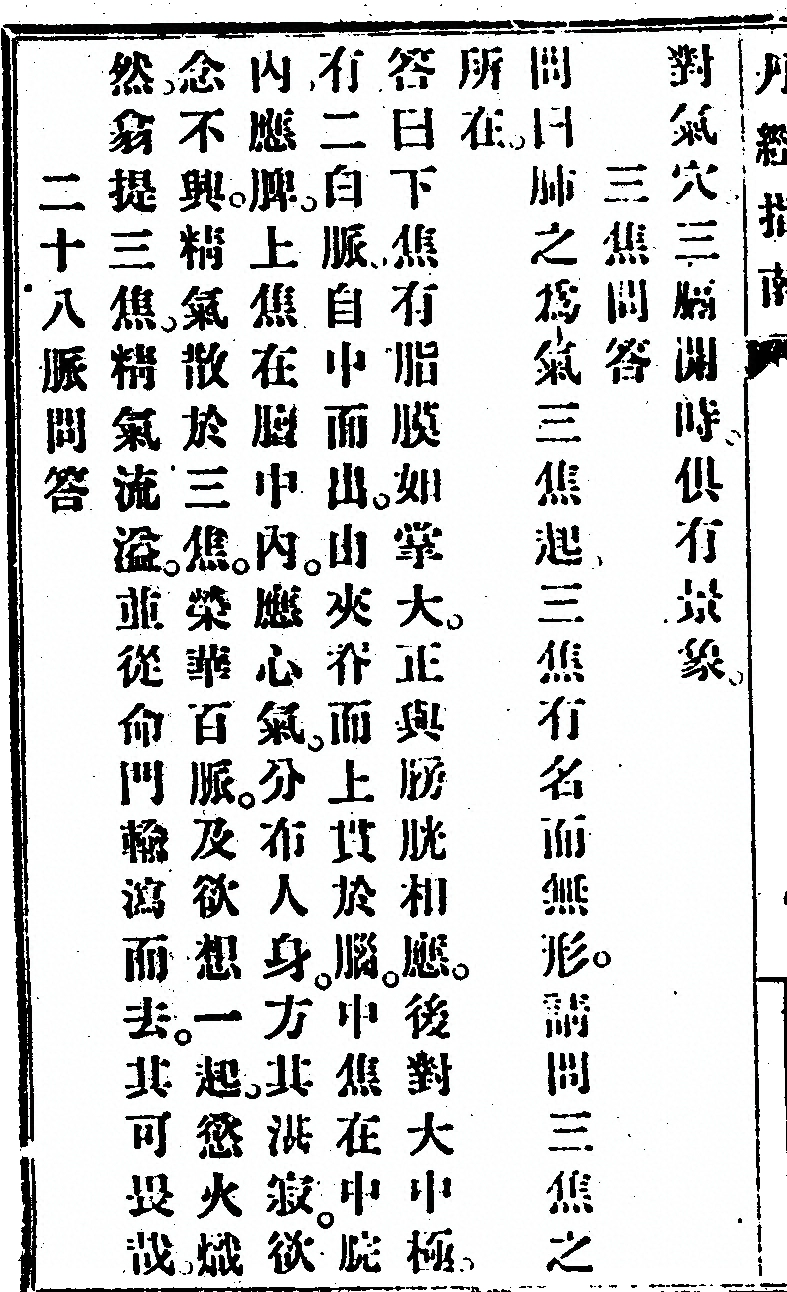 丹經指南
對氣穴三膈開時。俱有景象。
三焦問答
問曰肺之為氣三焦起、三焦有名而無形。請問三焦之
所在。
答曰下焦有脂膜如掌大。正與膀胱相應。後對大中極。
有二白脈、自中而出。由夾脊而上貫於腦。中焦在中脘、
內應脾。上焦在膻中內。應心氣。分布人身。方其湛寂。欲
念不興。精氣散於三焦。榮華百脈。及欲想一起。慾火熾
然。翕提三焦。精氣流溢。並從命門輸瀉而去。其可畏哉。
二十八脈問答